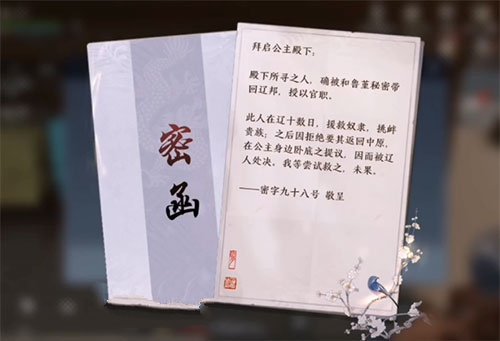 密函
拜启公主殿下:
殿下所寻之人，确被和鲁堇秘密带
回辽邦，授以官职。
此人在辽十数日，援救奴隶，挑衅
贵族，之后因拒绝要其返回中原，
在公主身边卧底之提议，因而被辽
人处决。我等尝试救之，未果。
——密字九十八号 敬呈